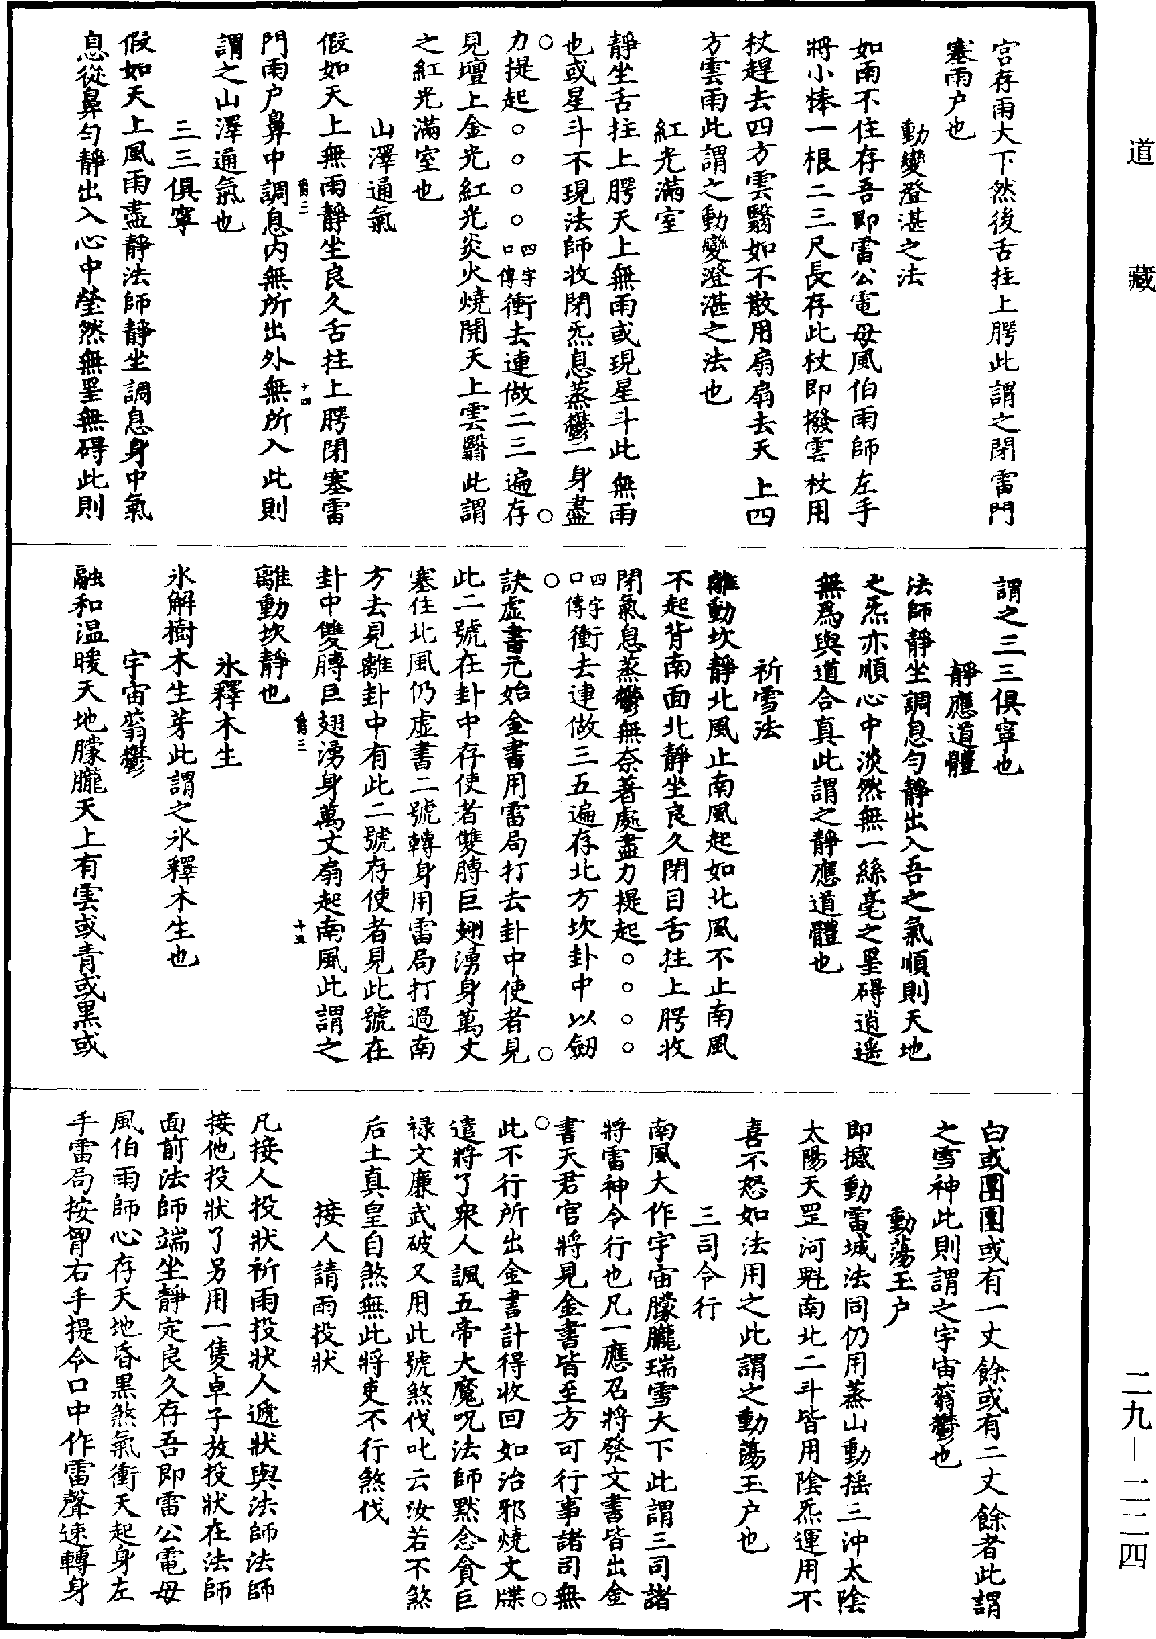 道藏
宮存雨大下然後舌拄上腭此謂之閉雷門
塞雨户也
動變澄湛之法
如雨不住存吾即雷公電母風伯雨師左手
將小棒一根二三尺長存此杖即撥雲杖用
杖趕去四方雲翳如不散用扇扇去天上四
方雲雨此謂之動變澄湛之法也
紅光滿室
靜坐舌拄上腭天上無雨或現星斗此無雨
也或星斗不現法師收閉炁息蒸鬱一身盡
力提起○○○○四字口傳衝去連做二三遍存
見壇上金光紅光炎火燒開天上雲翳此謂
之紅光滿室也
山澤通氣
假如天上無雨靜坐良久舌拄上腭閉塞雷
門雨户鼻中調息内無所出外無所入此則
謂之山澤通氣也
三三俱寧
假如天上風雨盡靜法師靜坐調息身中氣
息從鼻匀靜出入心中瑩然無罣無碍此則
謂之三三俱寧也
靜應道體
法師靜坐調息匀靜出入吾之氣順則天地
之炁亦順心中淡然無一絲毫之罣碍逍遥
無爲與道合真此謂之靜應道體也
祈雪法
離動坎靜北風止南風起如北風不止南風
不起背南面北靜坐良久閉目舌拄上腭收
閉氣息蒸鬱無奈著處盡力提起○○○○
四字口傳衝去連做三五遍存北方坎卦中以劒
訣虚書元始金書用雷局打去卦中使者見
此二號在卦中存使者雙膊巨翅湧身萬丈
塞住北風仍虚書二號轉身用雷局打過南
方去見離卦中有此二號存使者見此號在
卦中雙膊巨翅湧身萬丈扇起南風此謂之
離動坎靜也
氷釋木生
氷解樹木生芽此謂之氷釋木生也
宇宙蓊鬱
融和温暖天地朦朧天上有雲或青或黑或
白或團團或有一丈餘或有二丈餘者此謂
之雪神此則謂之宇宙蓊鬱也
動蕩玉户
即撼動雷城法同仍用蒸山動摇三沖太陰
太陽天罡河魁南北二斗皆用陰炁運用不
喜不怒如法用之此謂之動蕩玉户也
三司令行
南風大作宇宙朦朧瑞雪大下此謂三司諸
將雷神令行也凡一應召將發文書皆出金
書天君官將見金書皆至方可行事諸司無
此不行所出金書計得收回如治邪燒文牒
遣將了衆人諷五帝大魔呪法師黙念貪巨
禄文廉武破又用此號煞伐叱云汝若不煞
后土真皇自煞無此將吏不行煞伐
接人請雨投狀
凡接人投狀祈雨投狀人遞狀與法師法師
接他投狀了另用一隻卓子放投狀在法師
面前法師端坐靜定良久存吾即雷公電母
風伯雨師心存天地昏黒煞氣衝天起身左
手雷局按胷右手提令口中作雷聲速轉身
二九—二二四